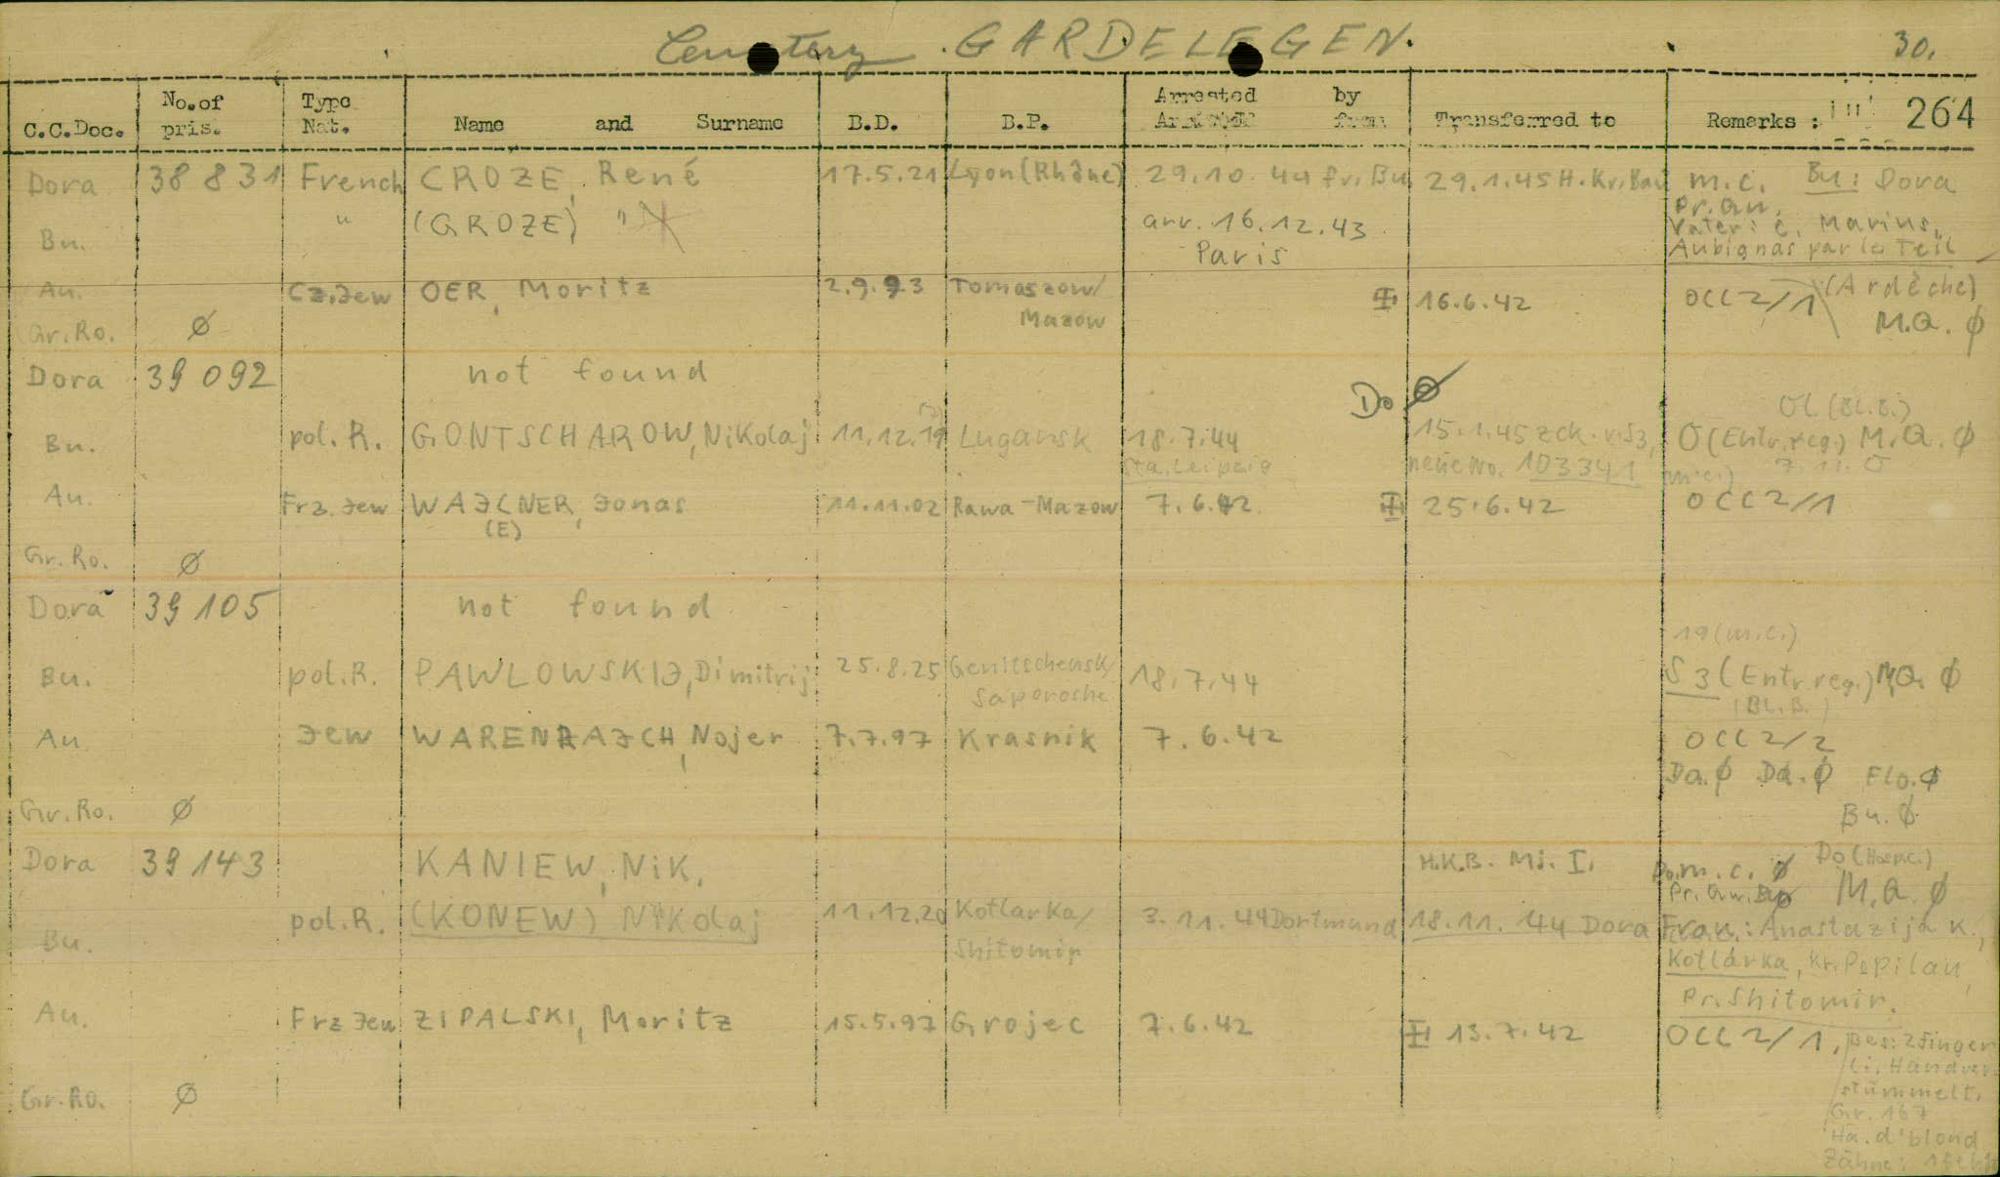 Cemetery GARDELEGEN. 30.
C.C.Doc. No. of pris. Type Nat. Name and Surname B.D. B.P. Arrested by from Transferred to Remarks : 264
Dora 38 831 French CROZE, René 17.5.21 Lyon (Rhône) 29.10.44 fr. Bu 29.1.45 H.Kr.Bau m.c. Bu: Dora
Pr. Qu.
Bu. " (GROZE) " arr. 16.12.43 Vater: C. Marius,
Paris Aubignas par le Teil
(Ardèche)
Au. Cz. Jew OER, Moritz 2.9.93 Tomaszow/ 16.6.42 OCC 2/1
Mazow M.Q. Ø
Gr.Ro. Ø
Dora 39 092 not found
Do Ø
OL (Bl.B.)
Bu. pol. R. GONTSCHAROW, Nikolaj 11.12.19 Lugansk 18.7.44 15.1.45 zck. v. S3, O (Entr. reg.) M.Q. Ø
Sta. Leipzig neue No. 103341 (m.c.) 7.11. O
Au. Frz. Jew WAJCNER, Jonas 11.11.02 Rawa-Mazow 7.6.42 25.6.42 OCC 2/1
(E)
Gr. Ro. Ø
Dora 39 105 not found
19 (m.c.)
Bu. pol. R. PAWLOWSKIJ, Dimitrij 25.8.25 Genitschensk/ 18.7.44 S3 (Entr. reg.) M.Q. Ø
Saporoshe (Bl.B.)
Au. Jew WARENRAJCH, Nojer 7.7.97 Krasnik 7.6.42 OCC 2/2
Da. Ø Da. Ø Flo. Ø
Gr. Ro. Ø Bu. Ø
Dora 39 143 KANIEW, Nik. H.K.B. Mi. I. Do. m.c. Ø Do (Hosp.c.)
Pr. Qu. Bu Ø M.Q. Ø
Bu. pol. R. (KONEW) Nikolaj 11.12.20 Kotlarka/ 3.11.44 Dortmund 18.11.44 Dora Frau: Anastazija K.,
Shitomir Kotlárka, Kr. Popilau,
Pr. Shitomir.
Au. Frz Jew ZIPALSKI, Moritz 15.5.97 Grojec 7.6.42 13.7.42 OCC 2/1, Bes: 2 Finger
li. Hand ver-
stümmelt.
Gr. Ro. Ø Gr. 167
Ha. d'blond
Zähne: